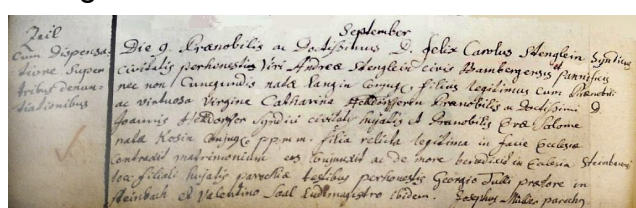 September
Zeil
Cum Dispensa-
tione Super
tribus denun-
tiationibus
Die 9. Prænobilis ac Doctissimus D. Felix Carolus Stenglein Syndicus
Civitatis perhonesti Viri Andreæ Stenglein civis Bambergensis et pannificis
nec non Cunegundis natæ Langin Conjugis filius legitimus cum Prænobili
ac virtuosa Virgine Catharina Prænobilis ac Doctissimi D.
Joannis Syndici civitatis hujatis et Prænobilis Evæ Salome
natæ Rosin Conjugis filia relicta legitima in facie Ecclesiæ
Contraxit matrimonium eos conjunxit ac de more benedixit in Ecclesia Steinbacensi
loco filiali hujatis parochiæ testibus perhonestis Georgio prætore in
Steinbach et Valentino Saal Ludimagistro ibidem. Josephus Müller parochus